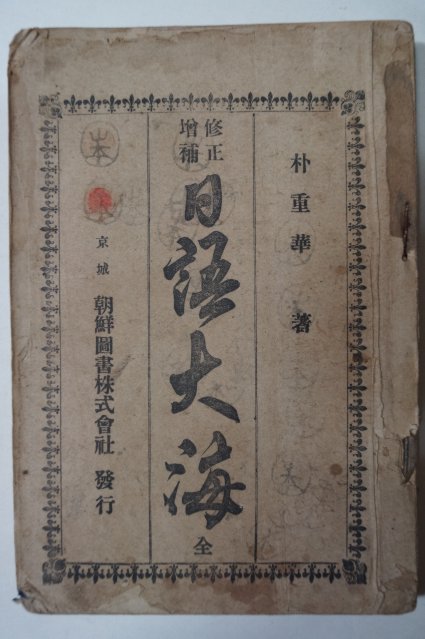 朴重華 著
修正
增補
日語大海 全
京城 朝鮮圖書株式會社 發行